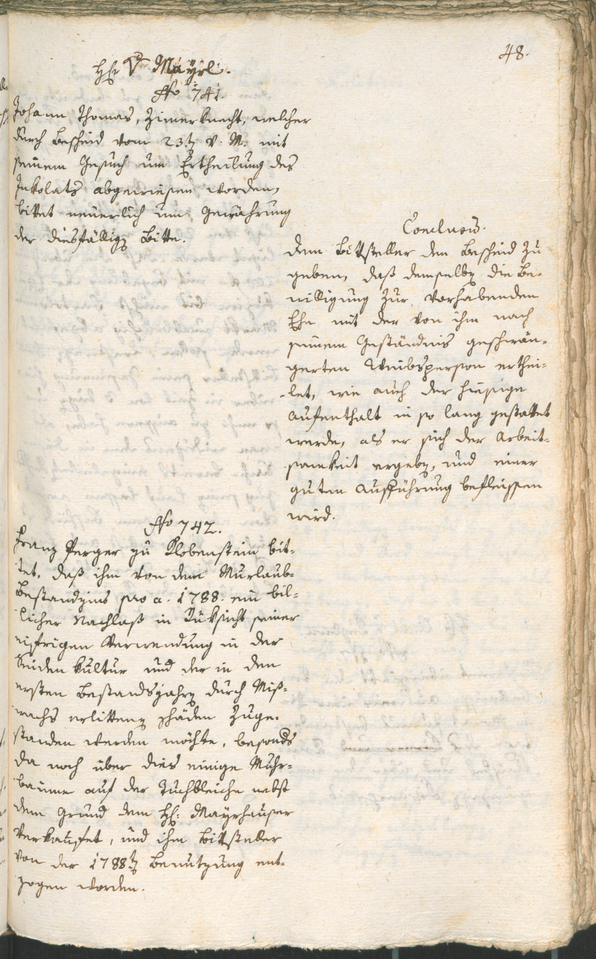 48.
H: V. Mayrl.
No 741.
Johann Thomas, Zimerknecht, welcher
durch Bescheid vom 23t v. M. mit
seinem Gesuch um Ertheilung des
Inkolats abgewiesen worden,
bittet neuerlich um Gewährung
der diesfällig Bitte.
Conclusum.
Dem Bittsteller den Bescheid zu
geben, daß demselb die Be-
willigung zur vorhabenden
Ehe mit der von ihm nach
seinem Geständnis geschwän-
gerten Weibsperson erthei-
let, wie auch der hiesige
Aufenthalt in so lang gestattet
werde, als er sich der Arbeit-
samkeit ergeb, und einer
guten Aufführung befleissen
wird.
No 742.
Franz Perger zu Klobenstein bit-
tet, daß ihm von dem
Bestandzins pro a: 1788 ein bil-
licher Nachlaß in Rüksicht seiner
eifrigen Verwendung in der
Seidenkultur und der in den
ersten Bestandsjahr durch Miß-
wachs erlitten Schäden zuge-
standen werden möchte, besonds
da noch über dies einige Mühr-
bäume auf der Tuchbleiche nebst
dem Grund dem H: Mayrhauser
verkaufet, und ihm Bittsteller
von der 1788t Benutzung ent-
zogen worden.